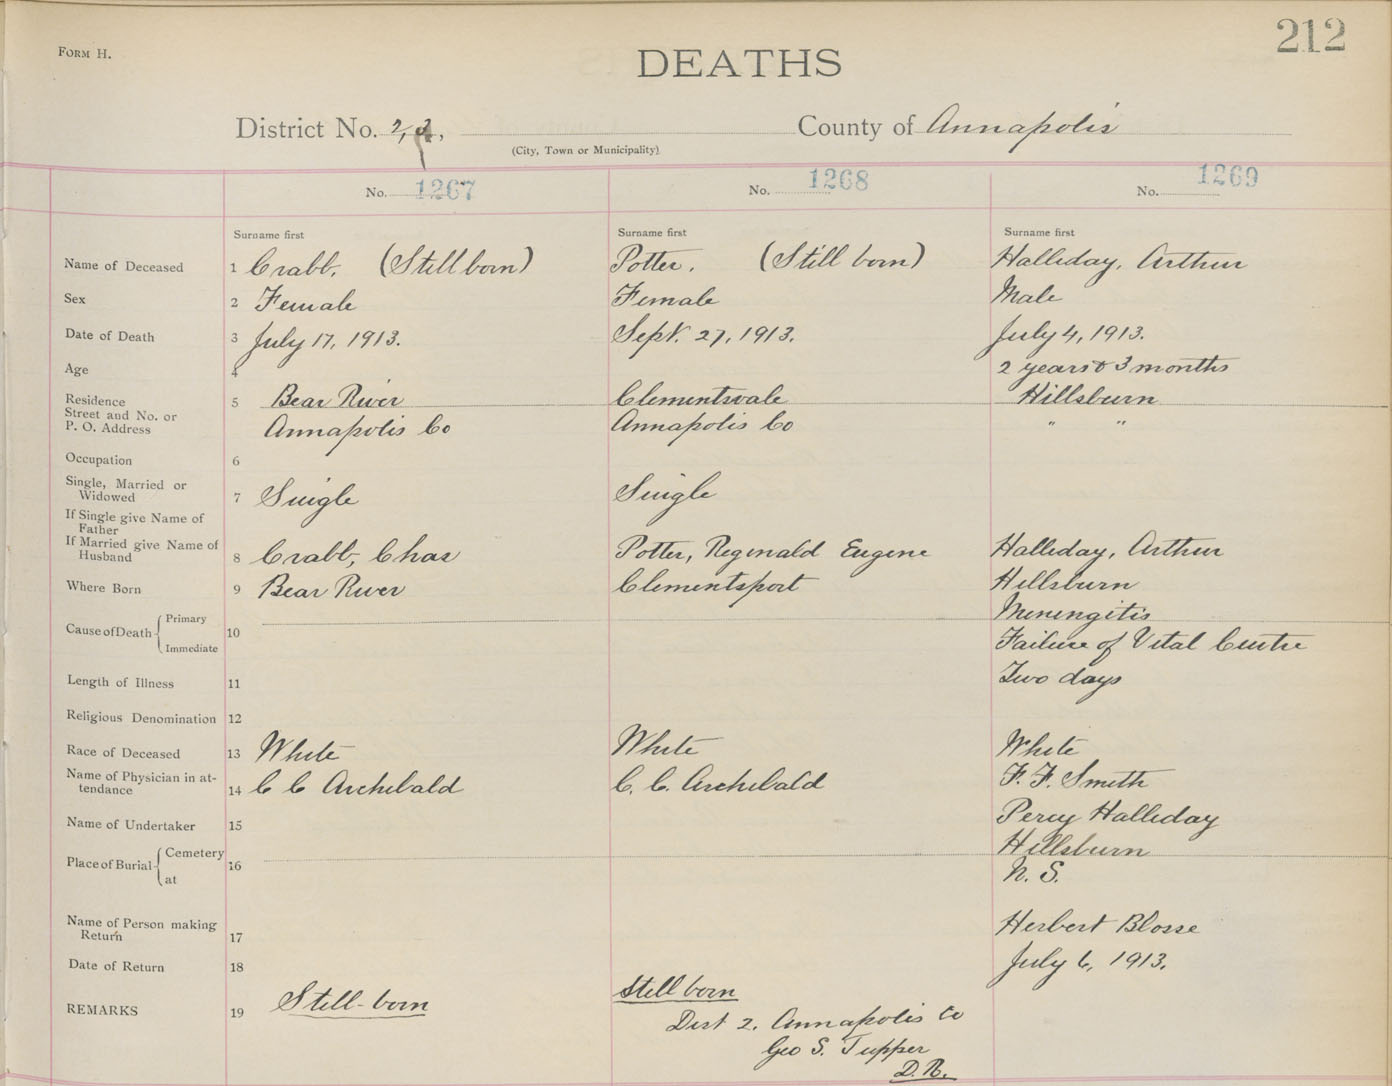 212
FORM H.
DEATHS
District No. 2, 3, County of Annapolis
(City, Town or Municipality)
No. 1267 No. 1268 No. 1269
Surname first Surname first Surname first
Name of Deceased 1 Crabb, (Still born) Potter. (Still born) Halliday, Arthur
Sex 2 Female Female Male
Date of Death 3 July 17, 1913. Sept. 27, 1913. July 4, 1913.
Age 4 2 years & 3 months
Residence 5 Bear River Clementsvale Hillsburn
Street and No. or P. O. Address Annapolis Co Annapolis Co " "
Occupation 6
Single, Married or Widowed 7 Single Single
If Single give Name of Father
If Married give Name of Husband 8 Crabb, Chas Potter, Reginald Eugene Halliday, Arthur
Where Born 9 Bear River Clementsport Hillsburn
Cause of Death Primary 10 Meningitis
Immediate Failure of Vital Centre
Length of Illness 11 Two days
Religious Denomination 12
Race of Deceased 13 White White White
Name of Physician in attendance 14 C C Archibald C. C. Archibald F. F. Smith
Name of Undertaker 15 Percy Halliday
Place of Burial Cemetery 16 Hillsburn
at N. S.
Name of Person making Return 17 Herbert Blosse
Date of Return 18 July 6, 1913.
REMARKS 19 Still-born Still born
Dist 2. Annapolis Co
Geo S. Tupper
D.R.